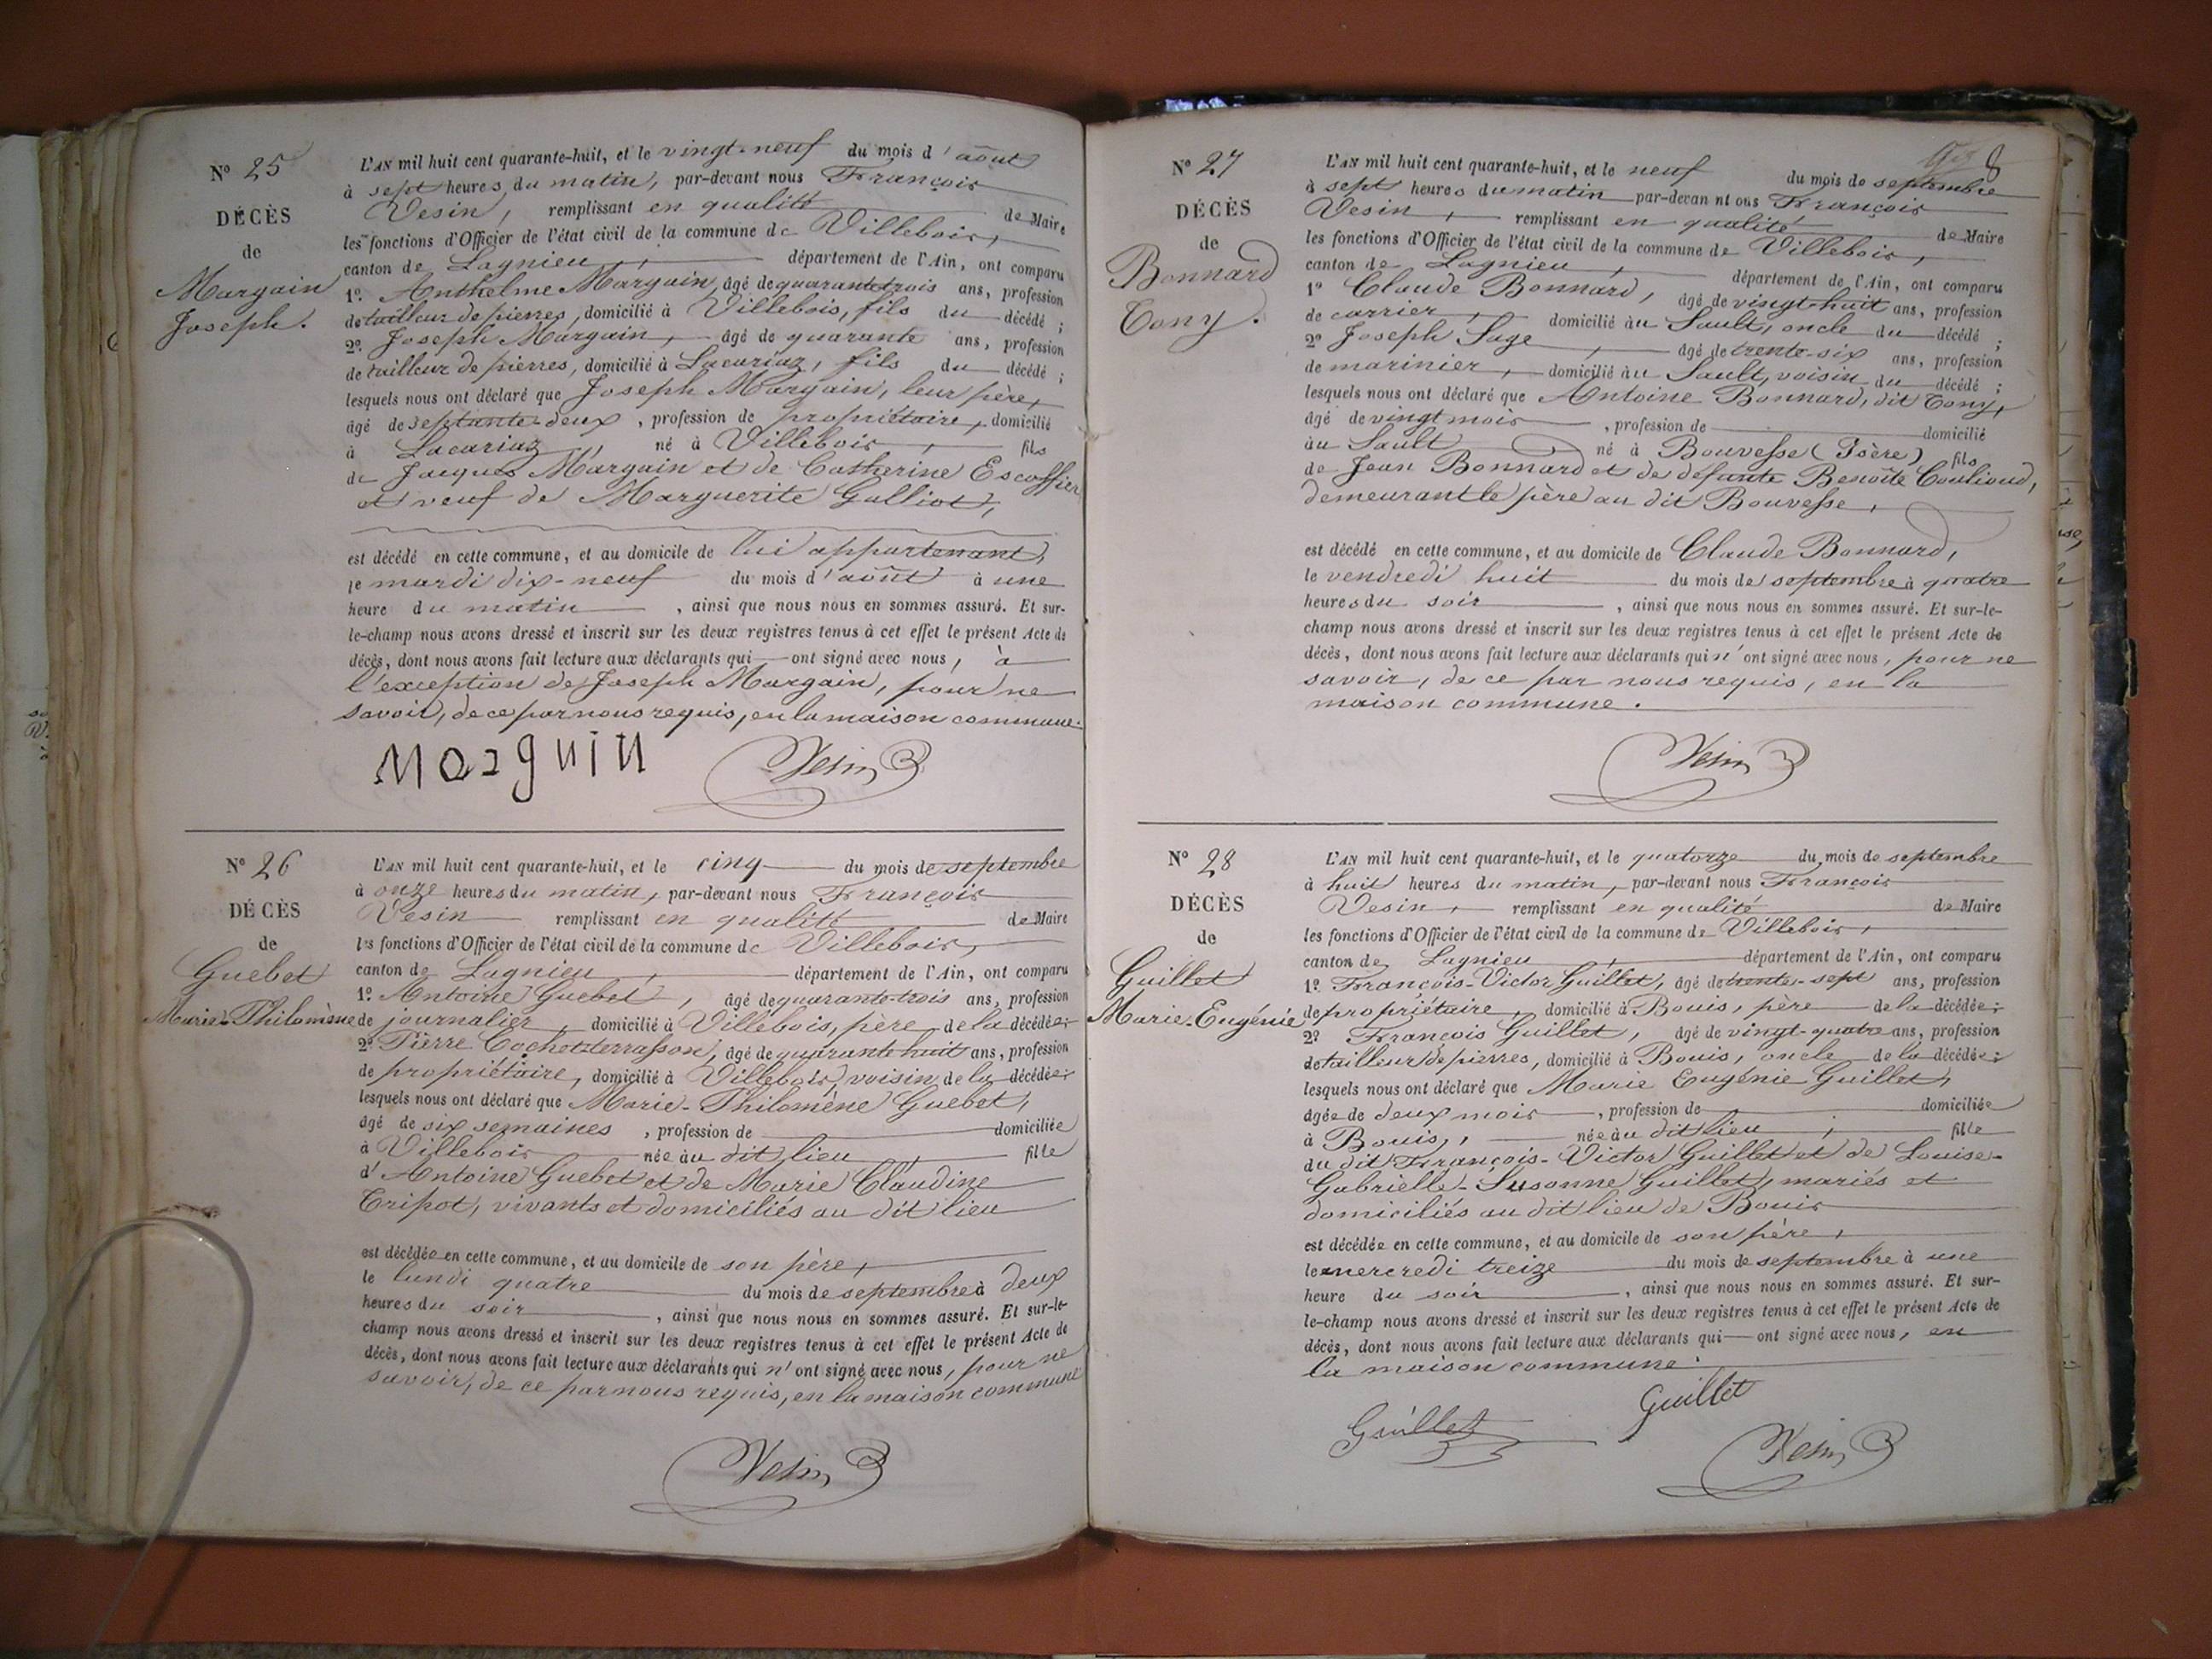 N° 25
DÉCÈS
de
Margain
Joseph.
L'AN mil huit cent quarante-huit, et le vingt-neuf du mois d'août
à sept heures du matin, par-devant nous François
Vesin, remplissant en qualité de Maire
les fonctions d'Officier de l'état civil de la commune de Villebois,
canton de Lagnieu, département de l'Ain, ont comparu
1°. Anthelme Margain, âgé de quarante-trois ans, profession
de tailleur de pierres, domicilié à Villebois, fils du décédé ;
2°. Joseph Margain, âgé de quarante ans, profession
de tailleur de pierres, domicilié à Lacariaz, fils du décédé ;
lesquels nous ont déclaré que Joseph Margain, leur père,
âgé de septante-deux, profession de propriétaire, domicilié
à Lacariaz, né à Villebois, fils
de Jacques Margain et de Catherine Escoffier
et veuf de Marguerite Galliot,
est décédé en cette commune, et au domicile de lui appartenant,
le mardi dix-neuf du mois d'août à une
heure du matin, ainsi que nous nous en sommes assuré. Et sur-
le-champ nous avons dressé et inscrit sur les deux registres tenus à cet effet le présent Acte de
décès, dont nous avons fait lecture aux déclarants qui ont signé avec nous, à
l'exception de Joseph Margain, pour ne
savoir, de ce par nous requis, en la maison commune.
Marguin Vesin
N° 26
DÉCÈS
de
Guebet
Marie-Philomène
L'AN mil huit cent quarante-huit, et le cinq du mois de septembre
à onze heures du matin, par-devant nous François
Vesin remplissant en qualité de Maire
les fonctions d'Officier de l'état civil de la commune de Villebois,
canton de Lagnieu, département de l'Ain, ont comparu
1°. Antoine Guebet, âgé de quarante-trois ans, profession
de journalier, domicilié à Villebois, père de la décédée ;
2°. Pierre Cochet-terrasson, âgé de quarante huit ans, profession
de propriétaire, domicilié à Villebois, voisin de la décédée ;
lesquels nous ont déclaré que Marie-Philomène Guebet,
âgé de six semaines, profession de domiciliée
à Villebois née au dit lieu, fille
d'Antoine Guebet et de Marie Claudine
Tripot, vivants et domiciliés au dit lieu
est décédée en cette commune, et au domicile de son père,
le lundi quatre du mois de septembre à deux
heures du soir, ainsi que nous nous en sommes assuré. Et sur-le-
champ nous avons dressé et inscrit sur les deux registres tenus à cet effet le présent Acte de
décès, dont nous avons fait lecture aux déclarants qui n'ont signé avec nous, pour ne
savoir, de ce par nous requis, en la maison commune
Vesin
8
N° 27
DÉCÈS
de
Bonnard
Tony.
L'AN mil huit cent quarante-huit, et le neuf du mois de septembre
à sept heures du matin par-devan nt ous François
Vesin, remplissant en qualité de Maire
les fonctions d'Officier de l'état civil de la commune de Villebois,
canton de Lagnieu, département de l'Ain, ont comparu
1° Claude Bonnard, âgé de vingt-huit ans, profession
de carrier, domicilié au Sault, oncle du décédé ;
2° Joseph Sage, âgé de trente-six ans, profession
de marinier, domicilié au Sault, voisin du décédé ;
lesquels nous ont déclaré que Antoine Bonnard, dit Tony,
âgé de vingt mois, profession de domicilié
au Sault né à Bouvesse (Isère) fils
de Jean Bonnard et de défunte Benoîte Couvioud,
demeurant le père au dit Bouvesse,
est décédé en cette commune, et au domicile de Claude Bonnard,
le vendredi huit du mois de septembre à quatre
heures du soir, ainsi que nous nous en sommes assuré. Et sur-le-
champ nous avons dressé et inscrit sur les deux registres tenus à cet effet le présent Acte de
décès, dont nous avons fait lecture aux déclarants qui n'ont signé avec nous, pour ne
savoir, de ce par nous requis, en la
maison commune.
Vesin
N° 28
DÉCÈS
de
Guillet
Marie-Eugénie
L'AN mil huit cent quarante-huit, et le quatorze du mois de septembre
à huit heures du matin, par-devant nous François
Vesin, remplissant en qualité de Maire
les fonctions d'Officier de l'état civil de la commune de Villebois,
canton de Lagnieu, département de l'Ain, ont comparu
1°. François-Victor Guillet, âgé de trente-sept ans, profession
de propriétaire, domicilié à Bouis, père de la décédée ;
2° François Guillet, âgé de vingt-quatre ans, profession
de tailleur de pierres, domicilié à Bouis, oncle de la décédée ;
lesquels nous ont déclaré que Marie Eugénie Guillet,
âgée de deux mois, profession de domiciliée
à Bouis, née au dit lieu, fille
du dit François-Victor Guillet et de Louise-
Gabrielle-Susanne Guillet, mariés et
domiciliés au dit lieu de Bouis
est décédée en cette commune, et au domicile de son père,
le mercredi treize du mois de septembre à une
heure du soir, ainsi que nous nous en sommes assuré. Et sur-
le-champ nous avons dressé et inscrit sur les deux registres tenus à cet effet le présent Acte de
décès, dont nous avons fait lecture aux déclarants qui ont signé avec nous, en
la maison commune.
Guillet Guillet
Vesin